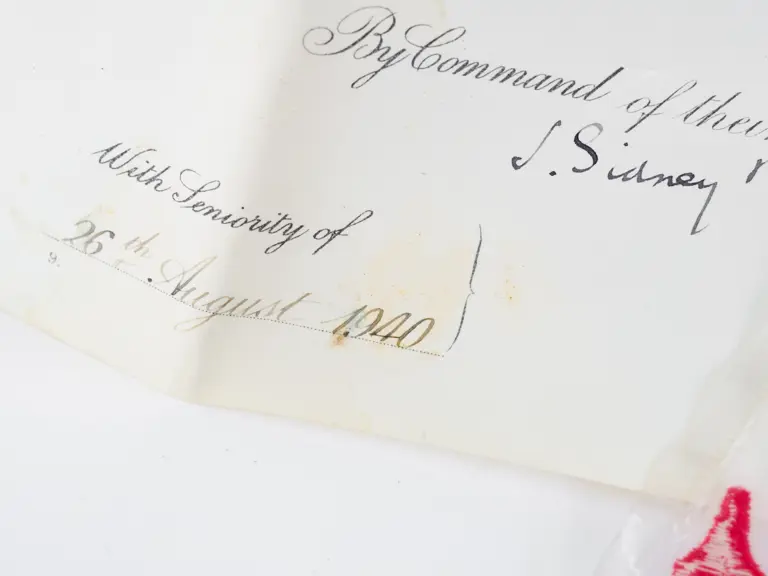 By Command of their
J. Sidney
With Seniority of
26th August 1940
9.